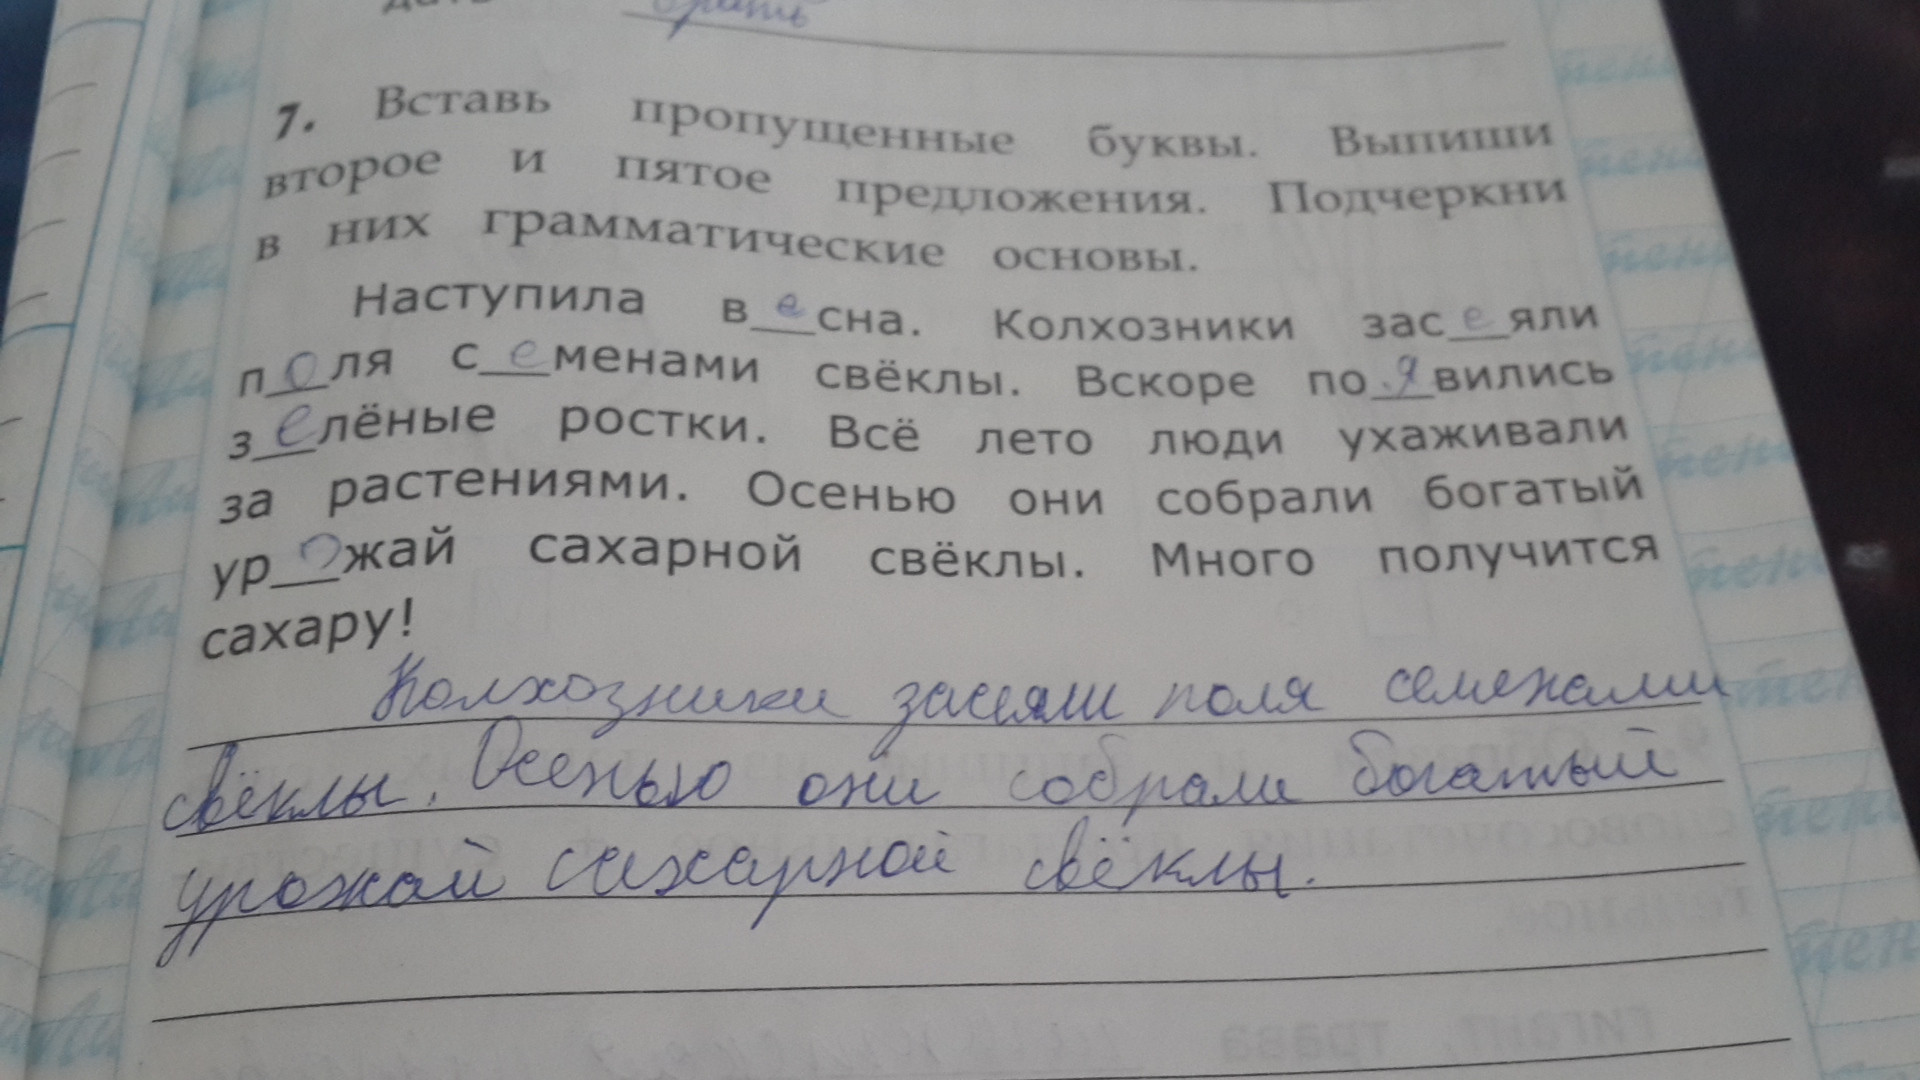 брать
7. Вставь пропущенные буквы. Выпиши
второе и пятое предложения. Подчеркни
в них грамматические основы.
Наступила в_е_сна. Колхозники зас_е_яли
п_о_ля с_е_менами свёклы. Вскоре по_я_вились
з_е_лёные ростки. Всё лето люди ухаживали
за растениями. Осенью они собрали богатый
ур_о_жай сахарной свёклы. Много получится
сахару!
Колхозники засеяли поля семенами
свёклы. Осенью они собрали богатый
урожай сахарной свёклы.